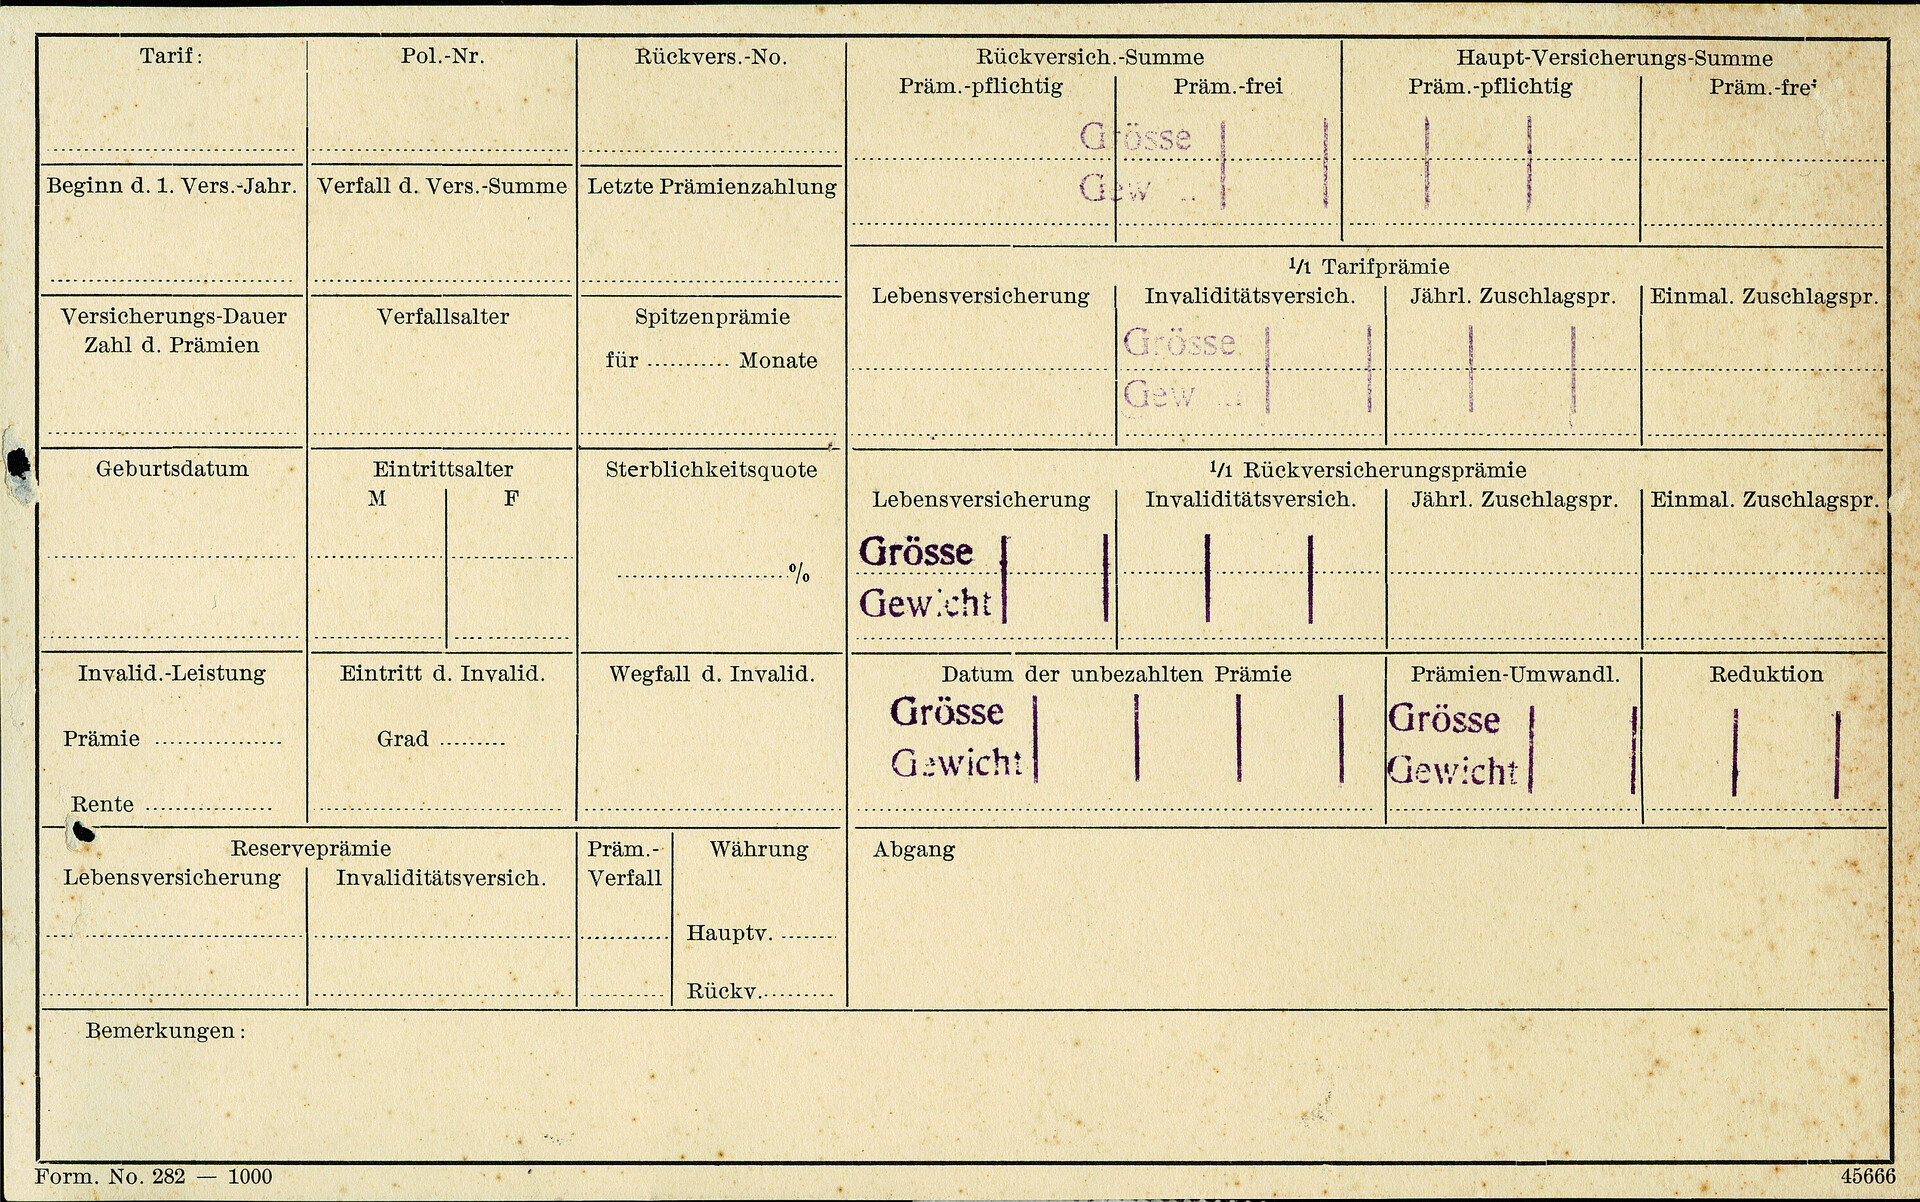 Tarif:
Pol.-Nr.
Rückvers.-No.
Rückversich.-Summe
Präm.-pflichtig
Präm.-frei
Haupt-Versicherungs-Summe
Präm.-pflichtig
Präm.-frei
Grösse
Gew
Beginn d. 1. Vers.-Jahr.
Verfall d. Vers.-Summe
Letzte Prämienzahlung
1/1 Tarifprämie
Lebensversicherung
Invaliditätsversich.
Jährl. Zuschlagspr.
Einmal. Zuschlagspr.
Grösse
Gew
Versicherungs-Dauer
Zahl d. Prämien
Verfallsalter
Spitzenprämie
für ........... Monate
Geburtsdatum
Eintrittsalter
M
F
Sterblichkeitsquote
%
1/1 Rückversicherungsprämie
Lebensversicherung
Invaliditätsversich.
Jährl. Zuschlagspr.
Einmal. Zuschlagspr.
Grösse
Gewicht
Invalid.-Leistung
Prämie ................
Rente ................
Eintritt d. Invalid.
Grad .........
Wegfall d. Invalid.
Datum der unbezahlten Prämie
Grösse
Gewicht
Prämien-Umwandl.
Reduktion
Grösse
Gewicht
Reserveprämie
Lebensversicherung
Invaliditätsversich.
Präm.-
Verfall
Währung
Hauptv. .......
Rückv..........
Abgang
Bemerkungen:
Form. No. 282 — 1000
45666